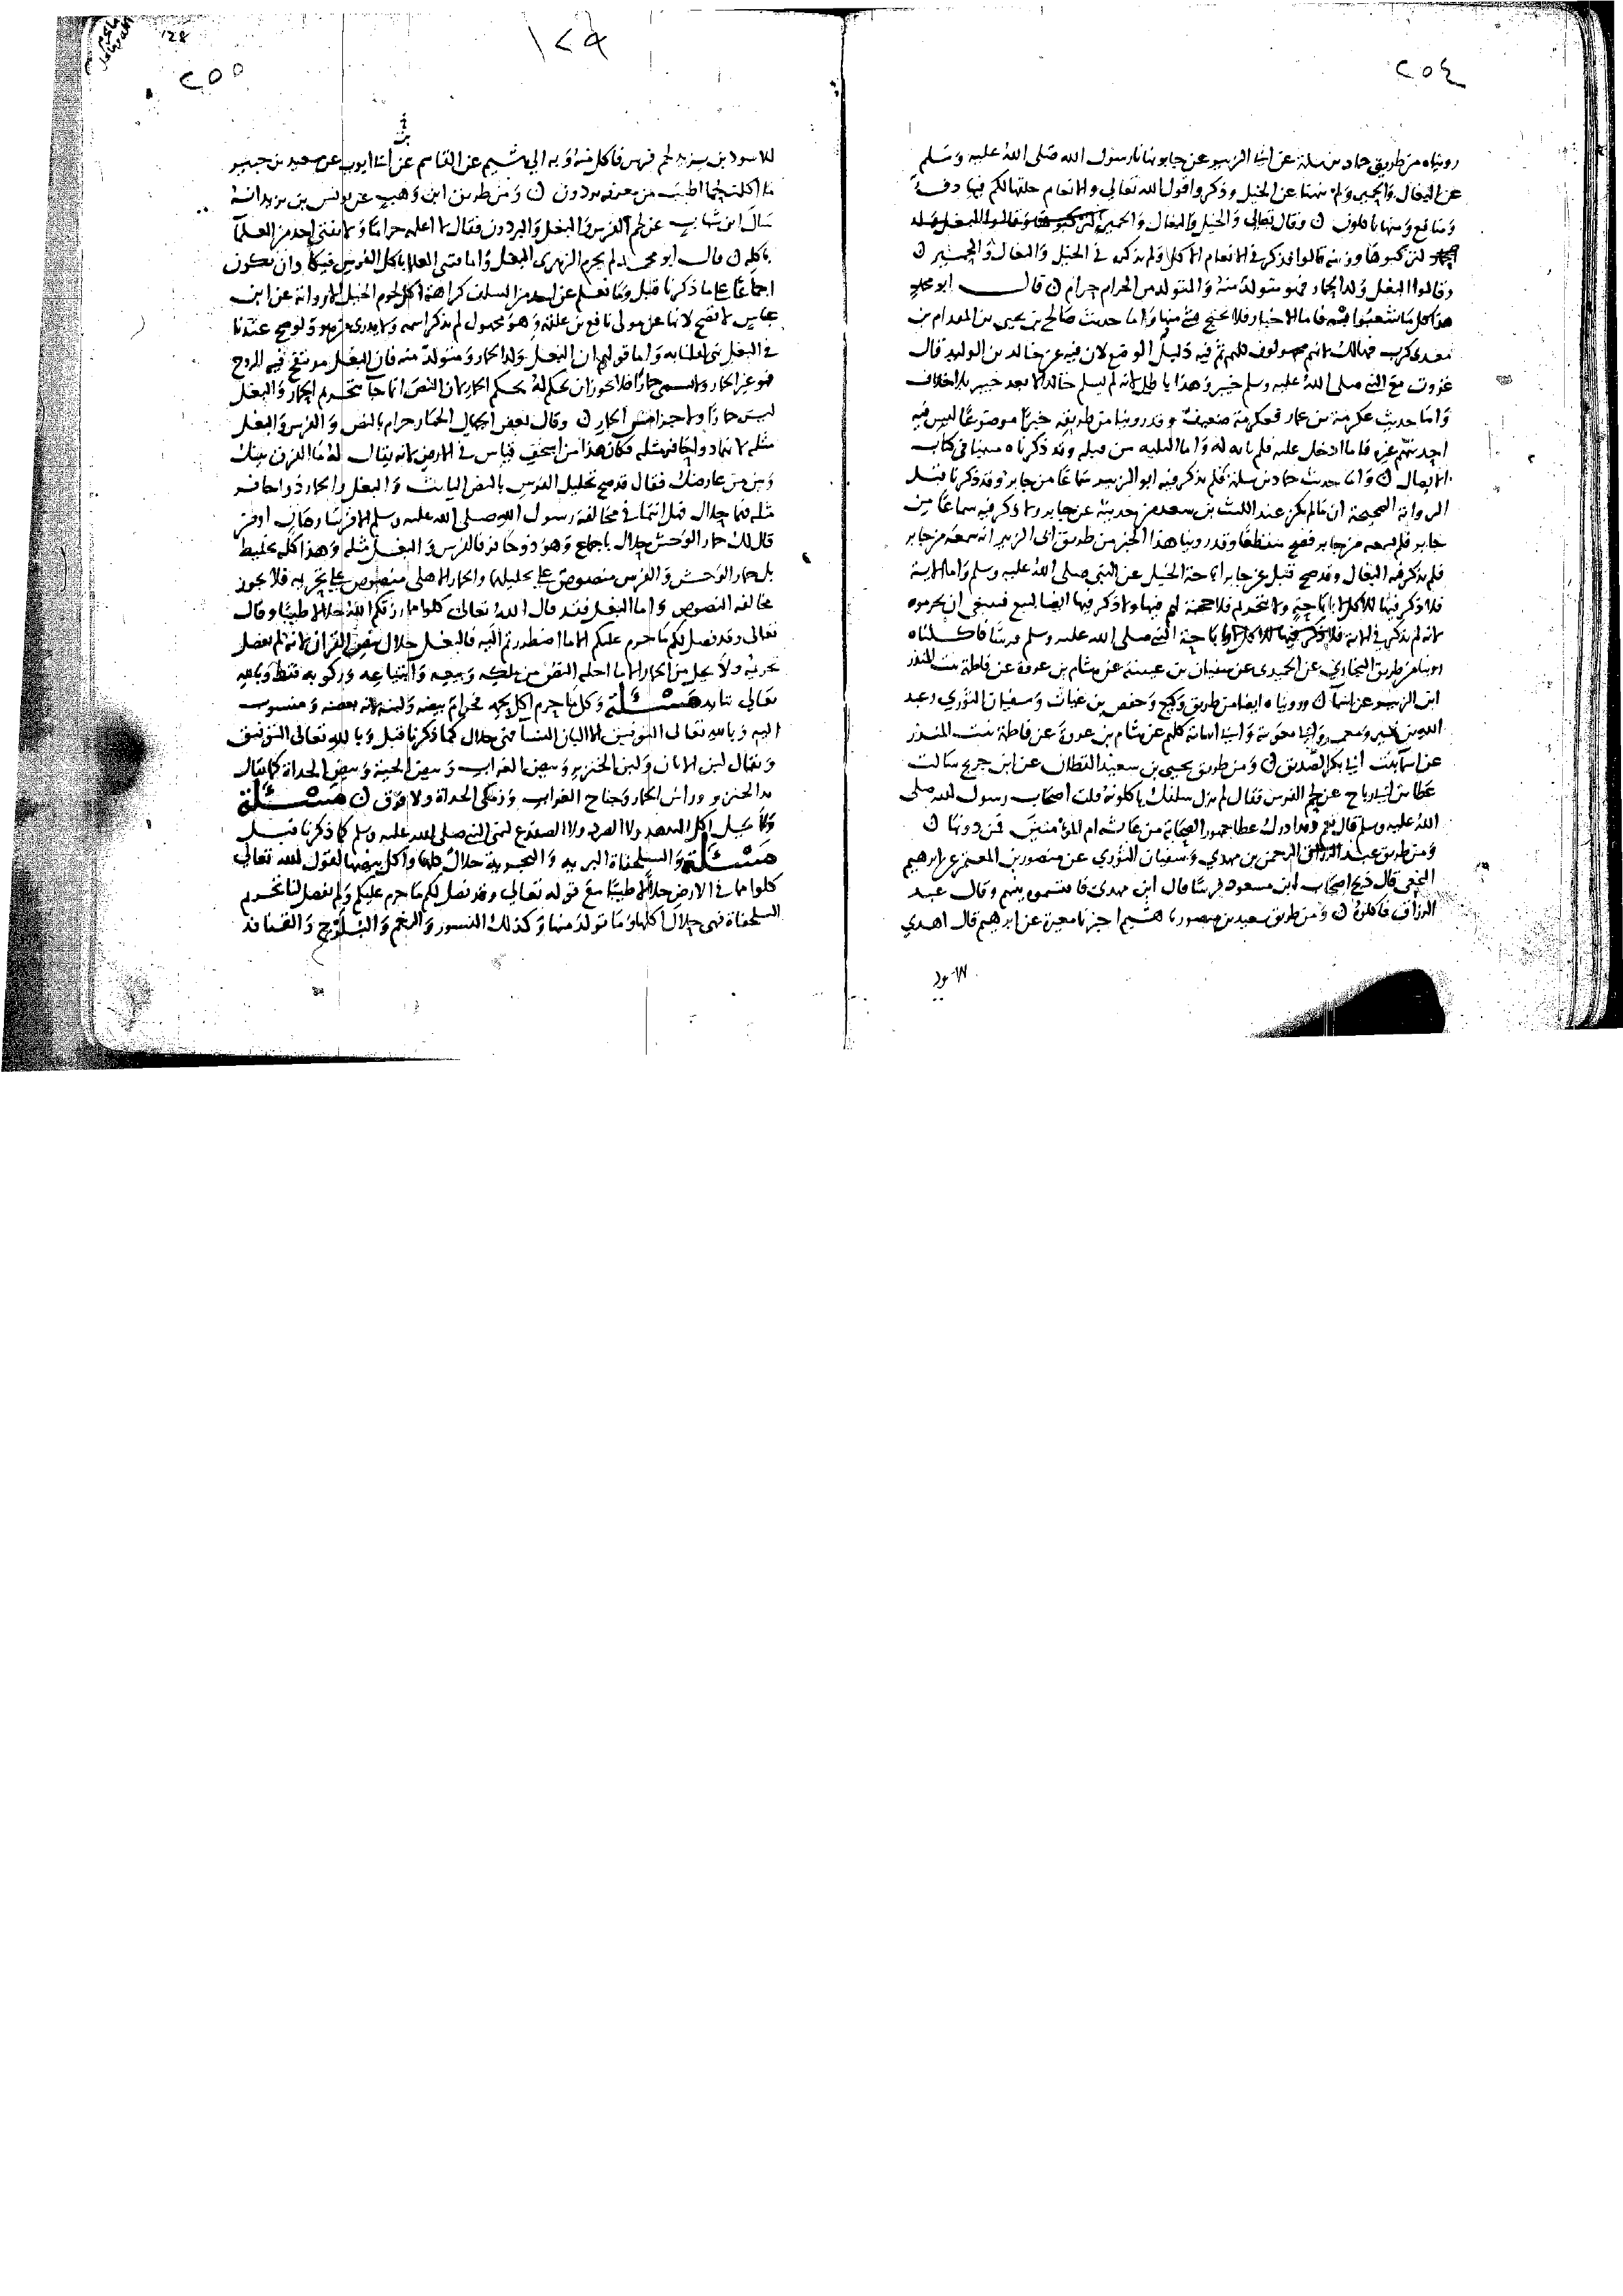 ٢٥٤
رويناه من طريق حماد بن سلمة عن ابي الزبير عن جابر نهانا رسول الله صلى الله عليه وسلم
عن البغال والحمير ولم ينهنا عن الخيل وذكروا قول الله تعالى والانعام خلقها لكم فيها دفء
ومنافع ومنها تاكلون ن وقال تعالى والخيل والبغال والحمير
لتركبوها وزينة قالوا فذكر في الانعام الاكل ولم يذكره في الخيل والبغال والحمير ن
وقالوا البغل ولد الحمار فهو متولد منه والمتولد من الحرام حرام ن قال ابو محمد
هذا كل ما شغبوا به فاما الاخبار فلا يحتج بشي منها واما حديث صالح بن يحيى بن المقدام بن
معدي كرب فهالك لانهم مجهولون كلهم ثم فيه دليل الوضع لان فيه عن خالد بن الوليد قال
غزوت مع النبي صلى الله عليه وسلم خيبر وهذا باطل لانه لم يسلم خالد الا بعد خيبر بلا خلاف
واما حديث عكرمة بن عمار فعكرمة ضعيف وقد روينا من طريقه خبرا موضوعا ليس فيه
احد يتهم غيره فاما ادخل عليه فلم يابه له واما البلية من قبله وقد ذكرناه مبينا في كتاب
الايصال ن واما حديث حماد بن سلمة فلم يذكر فيه ابو الزبير سماعا من جابر وقد ذكرنا قبل
الرواية الصحيحة ان ما لم يكن عند الليث بن سعد من حديثه عن جابر ولا ذكر فيه سماعا من
جابر فلم يسمعه من جابر فصح منقطعا وقد روينا هذا الخبر من طريق ابي الزبير انه سمعه من جابر
فلم يذكر فيه البغال وقد صح قبل عن جابر اباحة الخيل عن النبي صلى الله عليه وسلم واما الاية
فلا ذكر فيها للاكل لا باباحة ولا بتحريم فلا حجة لهم فيها ولا ذكر فيها ايضا البيع فينبغي ان يحرموه
لانه لم يذكر في الاية
روينا من طريق البخاري عن الحميدي عن سفيان بن عيينة عن هشام بن عروة عن فاطمة بنت المنذر
ابن الزبير عن اسما ن ورويناه ايضا من طريق وكيع وحفص بن غياث وسفيان الثوري وعبد
الله بن نمير ومعمر وابي معوية وابي اسامة كلهم عن هشام بن عروة عن فاطمة بنت المنذر
عن اسما بنت ابي بكر الصديق ن ومن طريق يحيى بن سعيد القطان عن ابن جريج سالت
عطا بن ابي رباح عن لحم الفرس فقال لم يزل سلفك ياكلونه قلت اصحاب رسول الله صلى
الله عليه وسلم قال نعم وقد ادرك عطا جمهور الصحابة من عائشة ام المؤمنين فمن دونها ن
ومن طريق عبد الرزاق الرحمن بن مهدي وسفيان الثوري عن منصور بن المعتمر عن ابرهيم
النخعي قال ذبح اصحاب ابن مسعود فرسا قال ابن مهدي فاقتسموه بينهم وقال عبد
الرزاق فاكلوه ن ومن طريق سعيد بن منصور نا هشيم اخبرنا مغيرة عن ابرهيم قال اهدي
للاسود
١٢٨
128
٢٥٥
للاسود بن يزيد لحم فرس فاكل منه وبه الى هشيم عن القاسم عن ابي ايوب عن سعيد بن جبير
ما اكلت لحما اطيب من معرفة برذون ن ومن طريق ابن وهب عن يونس بن يزيد انه
سال ابن شهاب عن لحم الفرس والبغل والبرذون فقال لا اعلمه حراما ولا يفتي احد من العلما
باكله ن قال ابو محمد لم يحرم الزهري البغل واما فتيا العلما باكل الفرس فيكاد ان يكون
اجماعا على ما ذكرنا قبل وما نعلم عن احد من السلف كراهة اكل لحوم الخيل الا رواية عن ابن
عباس لا تصح لانها عن مولى نافع بن علقمة وهو مجهول لم يذكر اسمه ولا يدرى من هو ولو صح عندنا
في البغل نهي لقلنا به واما قولهم ان البغل ولد الحمار ومتولد منه فان البغل مذ ينفخ فيه الروح
فهو غير الحمار ولا يسمى حمارا فلا يجوز ان يحكم له بحكم الحمار لان النص انما جا بتحريم الحمار والبغل
ليس حمارا ولا جزا من الحمار ن وقال بعض الجهال الحمار حرام بالنص والفرس والبغل
مثله لانه ذو حافر مثله فكان هذا من اسخف قياس في الارض لانه يقال له ما الفرق بينك
وبين من عارضك فقال قد صح تحليل الفرس بالنص الثابت والبغل والحمار ذوا حافر
مثله فهما حلال
قال لك حمار الوحش حلال باجماع وهو ذو حافر فالفرس والبغل مثله وهذا كله تخليط
بل حمار الوحش والفرس منصوص على تحليلهما والحمار الاهلي منصوص على تحريمه فلا يجوز
مخالفة النصوص واما البغل فقد قال الله تعالى كلوا مما رزقكم الله حلالا طيبا وقال
تعالى وقد فصل لكم ما حرم عليكم الا ما اضطررتم اليه فالبغل حلال بنص القران لانه لم يفصل
تحريمه ولا يحل من الحمار الا ما احله النص من ملكه وبيعه وابتياعه وركوبه فقط وبالله
تعالى نتايد مسئلة وكل ما حرم اكل لحمه فحرام بيضه ولبنه لانه بعضه ومنسوب
اليه وبالله تعالى التوفيق الا البان النسا فهي حلال كما ذكرنا قبل وبالله تعالى التوفيق
ويقال لبن الاتان ولبن الخنزير وبيض الغراب وبيض الحية وبيض الحداة كما يقال
يد الخنزير وراس الحمار وجناح الغراب وزمكى الحداة ولا فرق ن مسئلة
ولا يحل اكل الهدهد ولا الصرد ولا الضفدع لنهي النبي صلى الله عليه وسلم كما ذكرنا قبل
مسئلة والسلحفاة البرية والبحرية حلال اكلها واكل بيضها لقول الله تعالى
كلوا مما في الارض حلالا طيبا مع قوله تعالى وقد فصل لكم ما حرم عليكم ولم يفصل لنا تحريم
السلحفاة فهي حلال اكلها وما تولد منها وكذلك النسور والرخم والبلرج والقنافذ